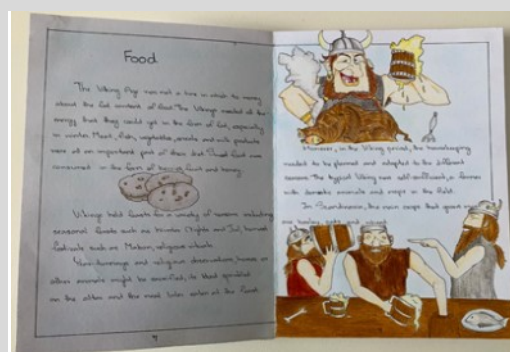 Food
The Viking Age was not a time in which to worry
about the fat content of food. The Vikings needed all the
energy that they could get in the form of fat, especially
in winter. Meat, fish, vegetables, cereals and milk products
were all an important part of their diet. Sweet food was
consumed in the form of berries, fruit and honey.
Vikings held feasts for a variety of reasons including
seasonal feasts such as Winter Nights and Jul, harvest
festivals such as Mabon, religious rituals.
religious observations, horses or
other animals might be sacrificed, its blood sprinkled
on the altar and the meat later eaten at the feast.
However, in the Viking period, the housekeeping
needed to be planned and adapted to the different
seasons. The typical Viking was self-sufficient, a farmer
with domestic animals and crops in the field.
In Scandinavia, the main crops that grew
are barley, oats and